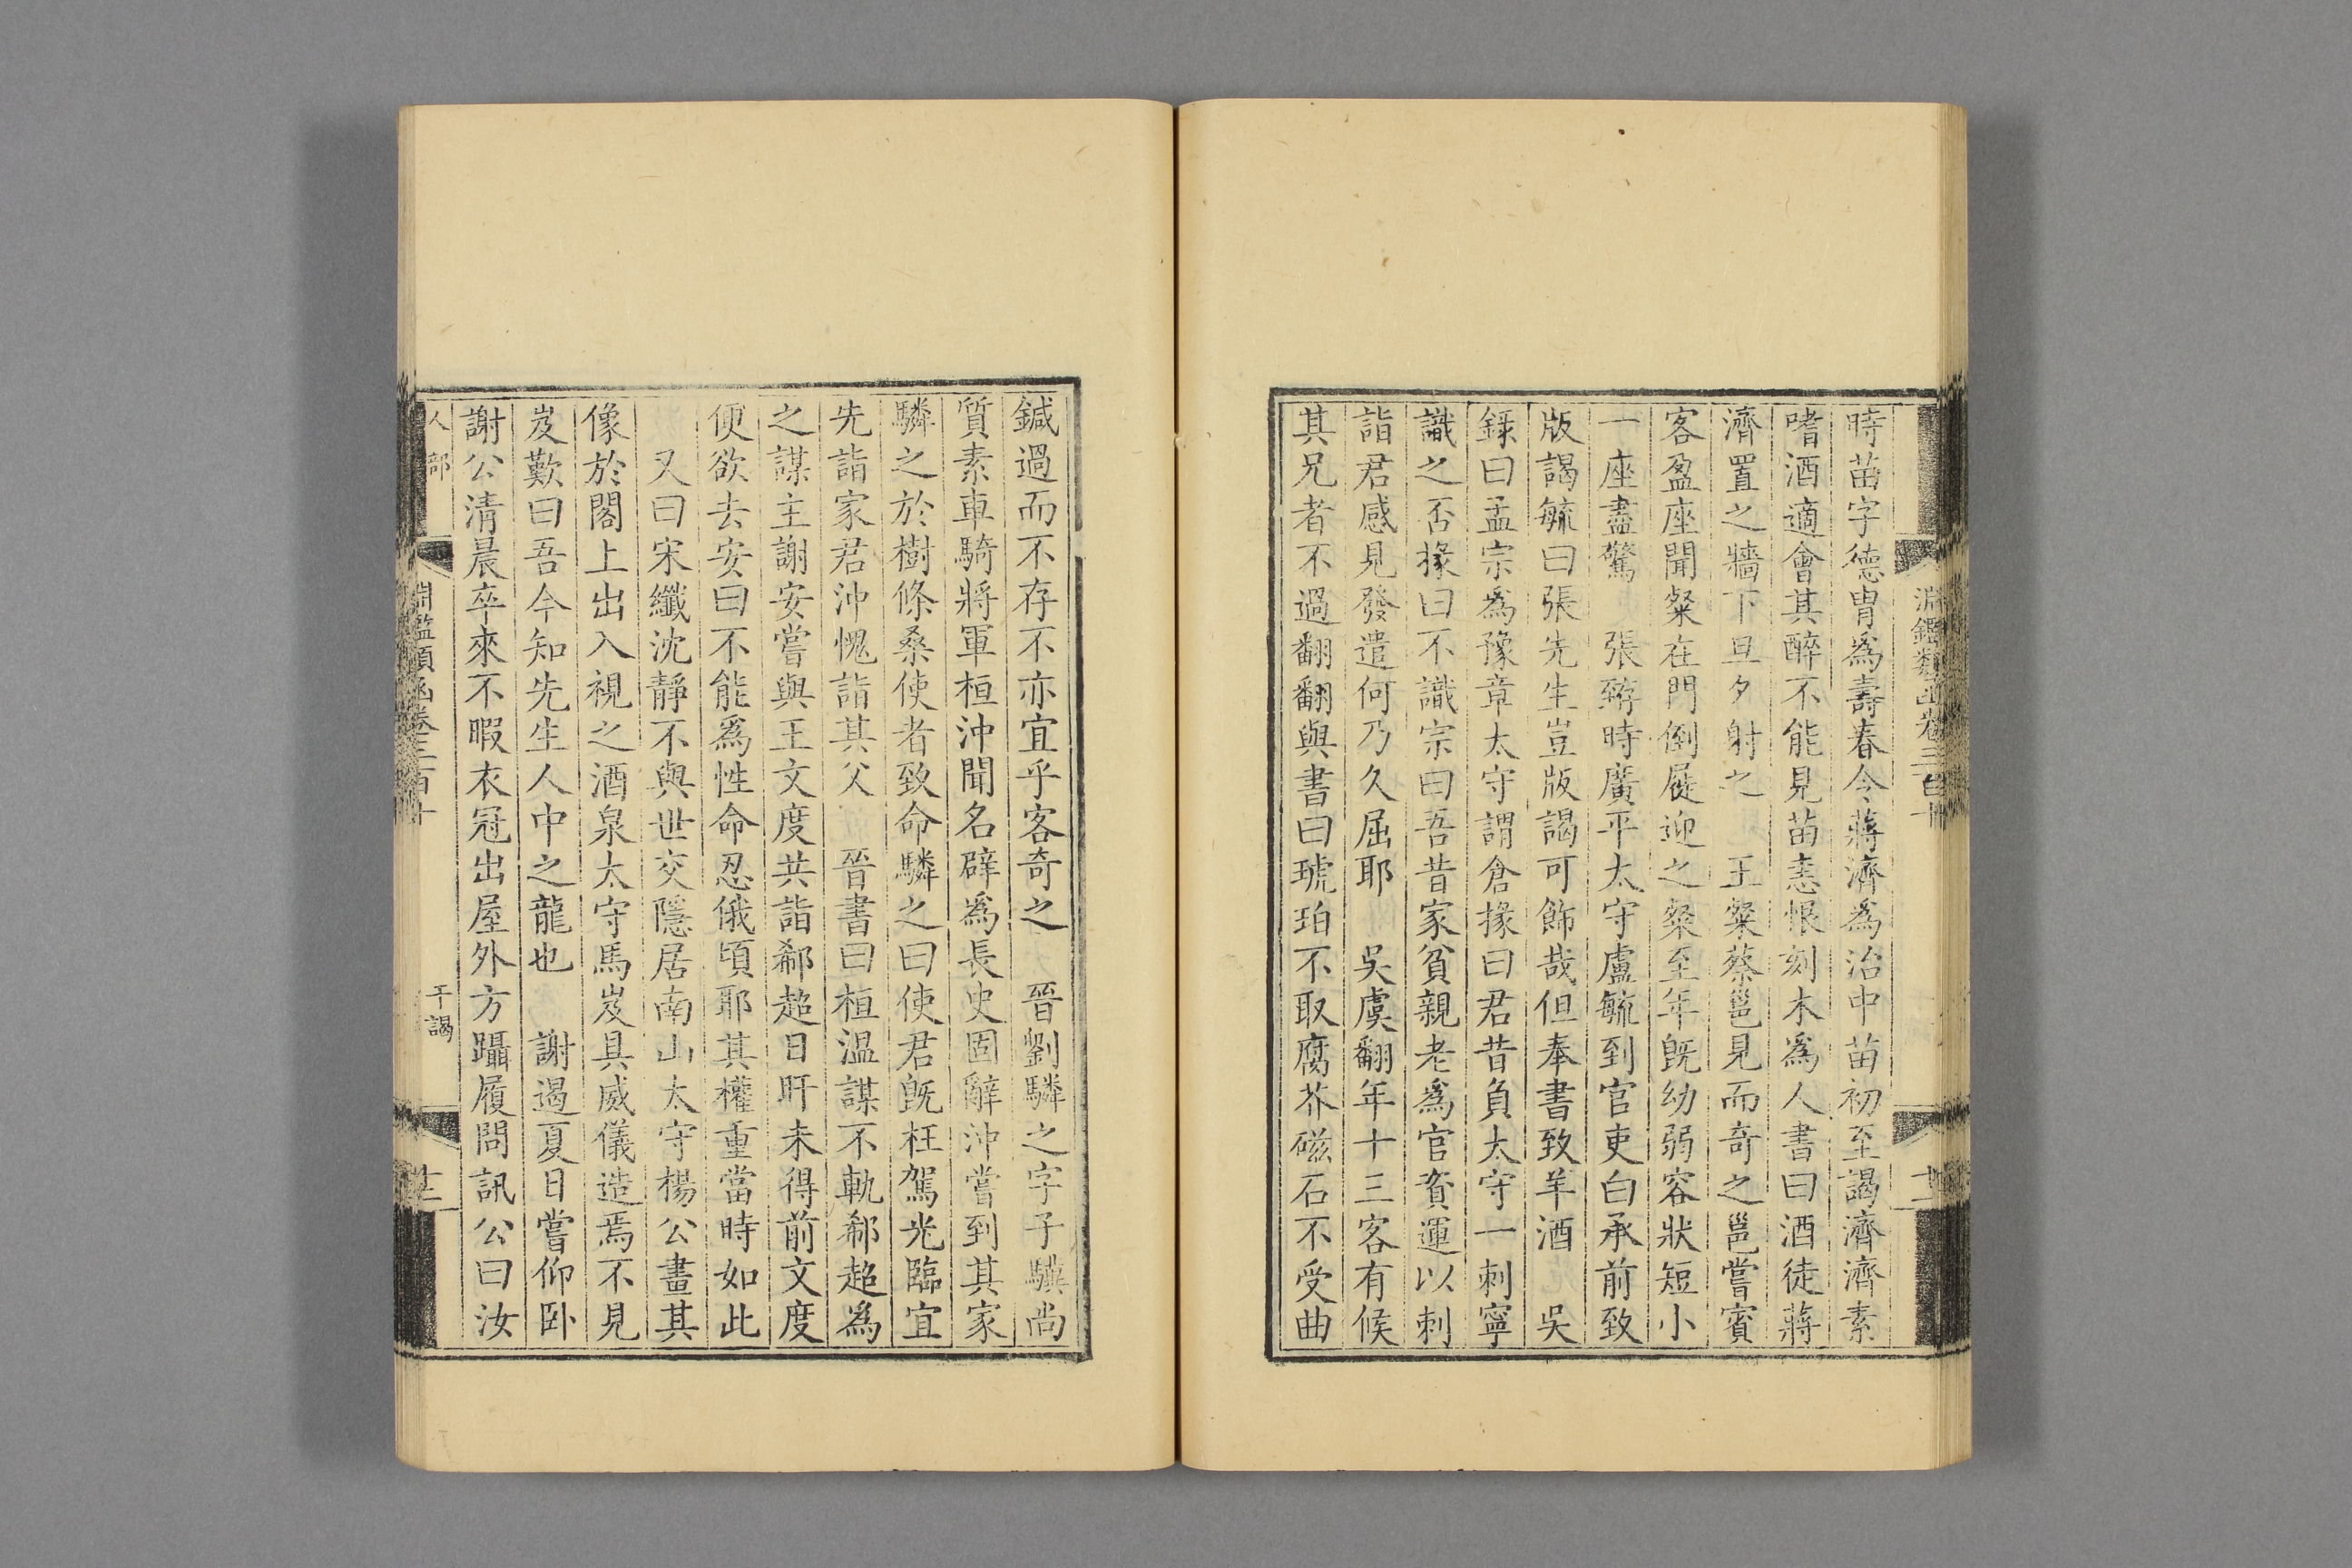 淵鑑類函卷三百十
時苗字德冑爲壽春令蔣濟爲治中苗初至謁濟濟素
嗜酒適會其醉不能見苗恚恨刻木爲人書曰酒徒蔣
濟置之牆下旦夕射之　王粲蔡邕見而奇之邕嘗賓
客盈座聞粲在門倒屣迎之粲至年旣幼弱容狀短小
一座盡驚　張臶時廣平太守盧毓到官吏白承前致
版謁毓曰張先生豈版謁可飾哉但奉書致羊酒　吳
錄曰孟宗爲豫章太守謂倉掾曰君昔負太守一刺寧
識之否掾曰不識宗曰吾昔家貧親老爲官資運以刺
詣君感見發遣何乃久屈耶　吳虞翻年十三客有候
其兄者不過翻翻與書曰琥珀不取腐芥磁石不受曲
鍼過而不存不亦宜乎客奇之　晉劉驎之字子驥尚
質素車騎將軍桓沖聞名辟爲長史固辭沖嘗到其家
驎之於樹條桑使者致命驎之曰使君旣枉駕光臨宜
先詣家君沖愧詣其父　晉書曰桓溫謀不軌郗超爲
之謀主謝安嘗與王文度共詣郗超日旰未得前文度
便欲去安曰不能爲性命忍俄頃耶其權重當時如此
又曰宋纖沈靜不與世交隱居南山太守楊公畫其
像於閣上出入視之酒泉太守馬岌具威儀造焉不見
岌歎曰吾今知先生人中之龍也　謝遏夏日嘗仰卧
謝公清晨卒來不暇衣冠出屋外方躡履問訊公曰汝
人部
淵鑑類函卷三百十
干謁